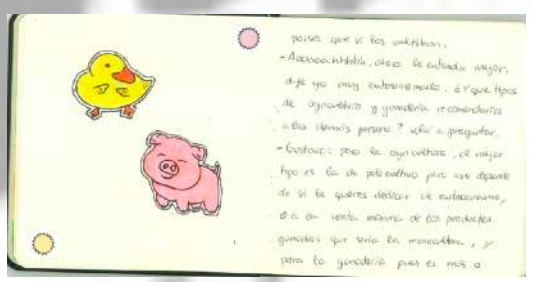 países que sí los utilizan.
- Aaaaaahhhhh, ahora lo entiendo mejor,
dije yo muy entusiasmado. ¿Y que tipos
de agricultura y ganadería recomendarías
a las demás persona? volví a preguntar.
- Gustavo: para la agricultura, el mejor
tipo es la de policultivo pero eso depende
de si te quieres dedicar al autoconsumo,
o a la venta de los productos
que sería la monocultura, y
para la ganadería pues es más o